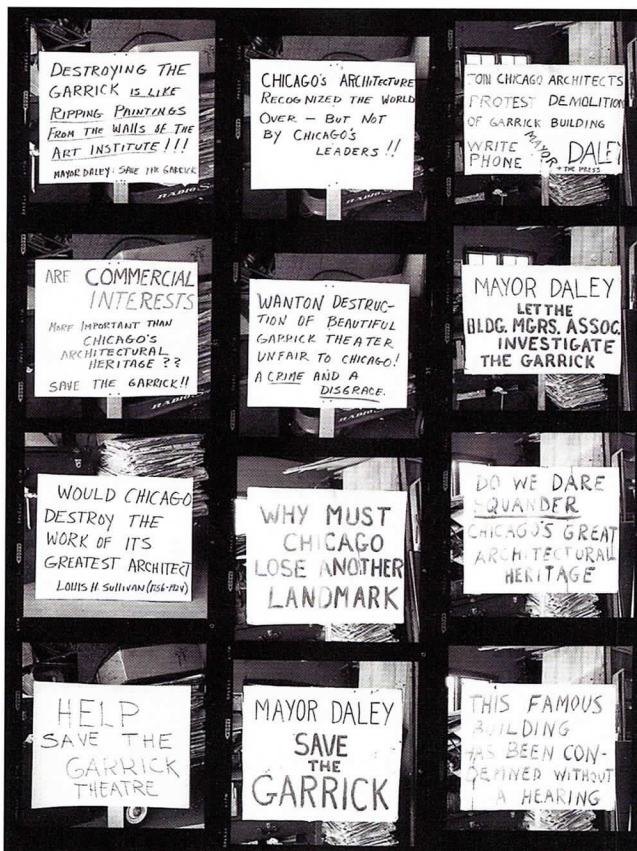 DESTROYING THE
GARRICK IS LIKE
RIPPING PAINTINGS
FROM THE WALLS OF THE
ART INSTITUTE!!!
MAYOR DALEY: SAVE THE GARRICK
CHICAGO'S ARCHITECTURE
RECOGNIZED THE WORLD
OVER – BUT NOT
BY CHICAGO'S
LEADERS!!
JOIN CHICAGO ARCHITECTS
PROTEST DEMOLITION
OF GARRICK BUILDING
WRITE MAYOR DALEY
PHONE + THE PRESS
ARE COMMERCIAL
INTERESTS
MORE IMPORTANT THAN
CHICAGO'S
ARCHITECTURAL
HERITAGE??
SAVE THE GARRICK!!
WANTON DESTRUC-
TION OF BEAUTIFUL
GARRICK THEATER
UNFAIR TO CHICAGO!
A CRIME AND A
DISGRACE.
MAYOR DALEY
LET THE
BLDG. MGRS. ASSOC.
INVESTIGATE
THE GARRICK
WOULD CHICAGO
DESTROY THE
WORK OF ITS
GREATEST ARCHITECT
LOUIS H. SULLIVAN (1856-1924)
WHY MUST
CHICAGO
LOSE ANOTHER
LANDMARK
DO WE DARE
SQUANDER
CHICAGO'S GREAT
ARCHITECTURAL
HERITAGE
HELP
SAVE THE
GARRICK
THEATRE
MAYOR DALEY
SAVE
THE
GARRICK
THIS FAMOUS
BUILDING
HAS BEEN CON-
DEMNED WITHOUT
A HEARING